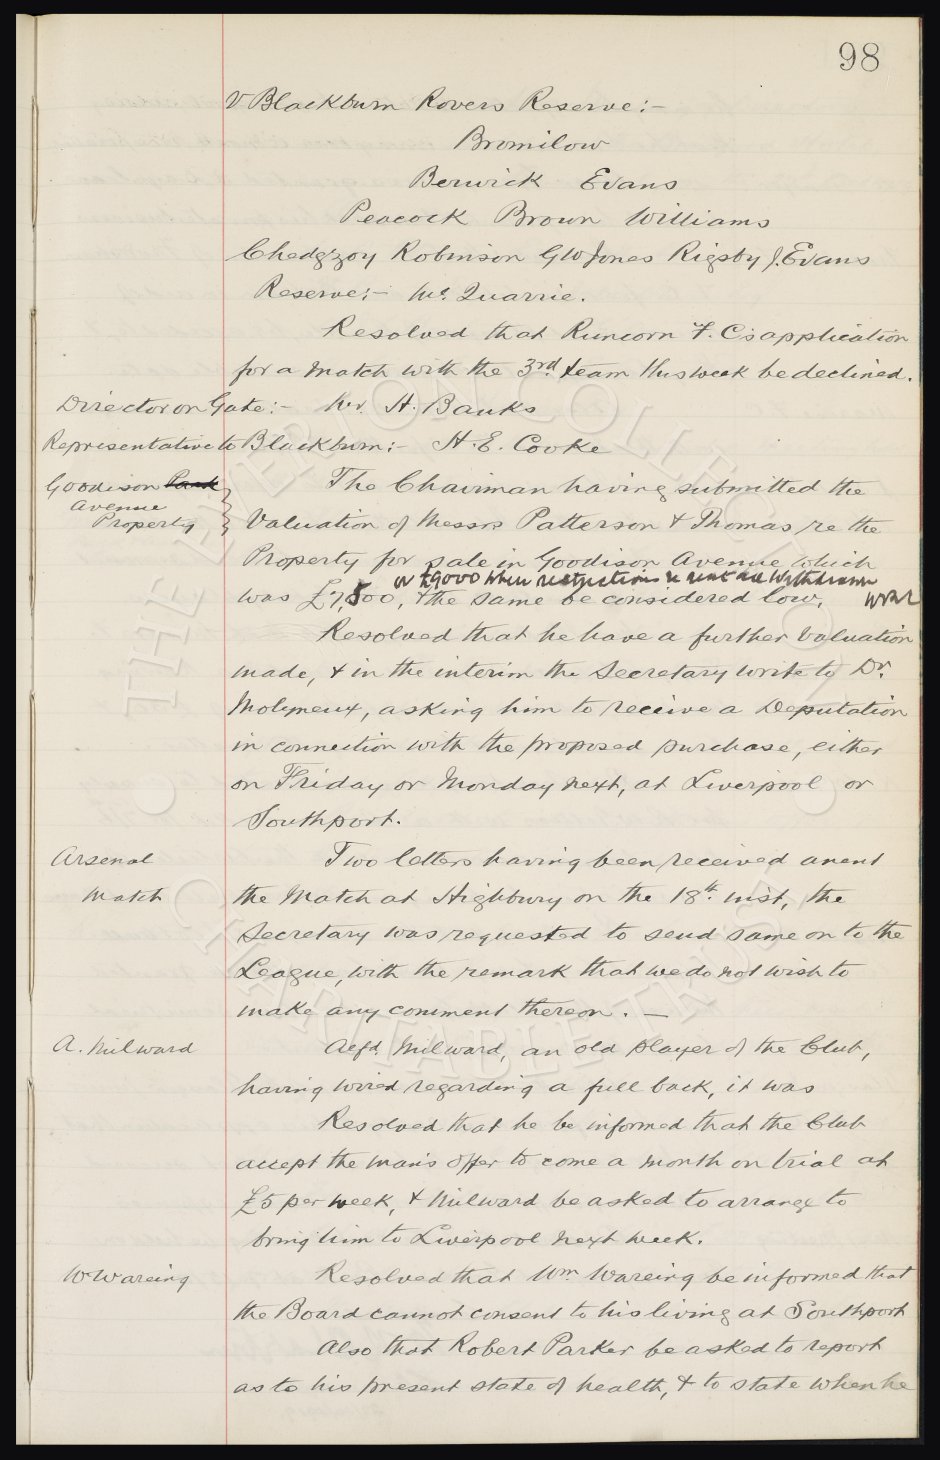 98
V Blackburn Rovers Reserve:-
Bromilow
Berwick Evans
Peacock Brown Williams
Chedgzoy Robinson G W Jones Rigsby J. Evans
Reserve:- McQuarrie.
Resolved that Runcorn F. C's application
for a match with the 3rd team this week be declined.
Director on Gate:- Mr. H. Banks
Representative to Blackburn:- H. E. Cooke
Goodison Park The Chairman having submitted the
Avenue
Property Valuation of Messrs Patterson & Thomas re the
Property for sale in Goodison Avenue which
or £9000 when restrictions re rent are withdrawn
was £7,500, & the same be considered low.
Resolved that he have a further Valuation
made, & in the interim the Secretary write to Dr.
Molyneux, asking him to receive a Deputation
in connection with the proposed purchase, either
on Friday or Monday next, at Liverpool or
Southport.
Arsenal Two letters having been received anent
Match the Match at Highbury on the 18th. inst, the
Secretary was requested to send same on to the
League, with the remark that we do not wish to
make any comment thereon. —
A. Milward Alfd. Milward, an old player of the Club,
having wired regarding a full back, it was
Resolved that he be informed that the Club
accept the man's offer to come a month on trial at
£5 per week, & Milward be asked to arrange to
bring him to Liverpool next week.
W Wareing Resolved that Wm Wareing be informed that
the Board cannot consent to his living at Southport
Also that Robert Parker be asked to report
as to his present state of health, & to state when he
THE EVERTON COLLECTION
CHARITABLE TRUST